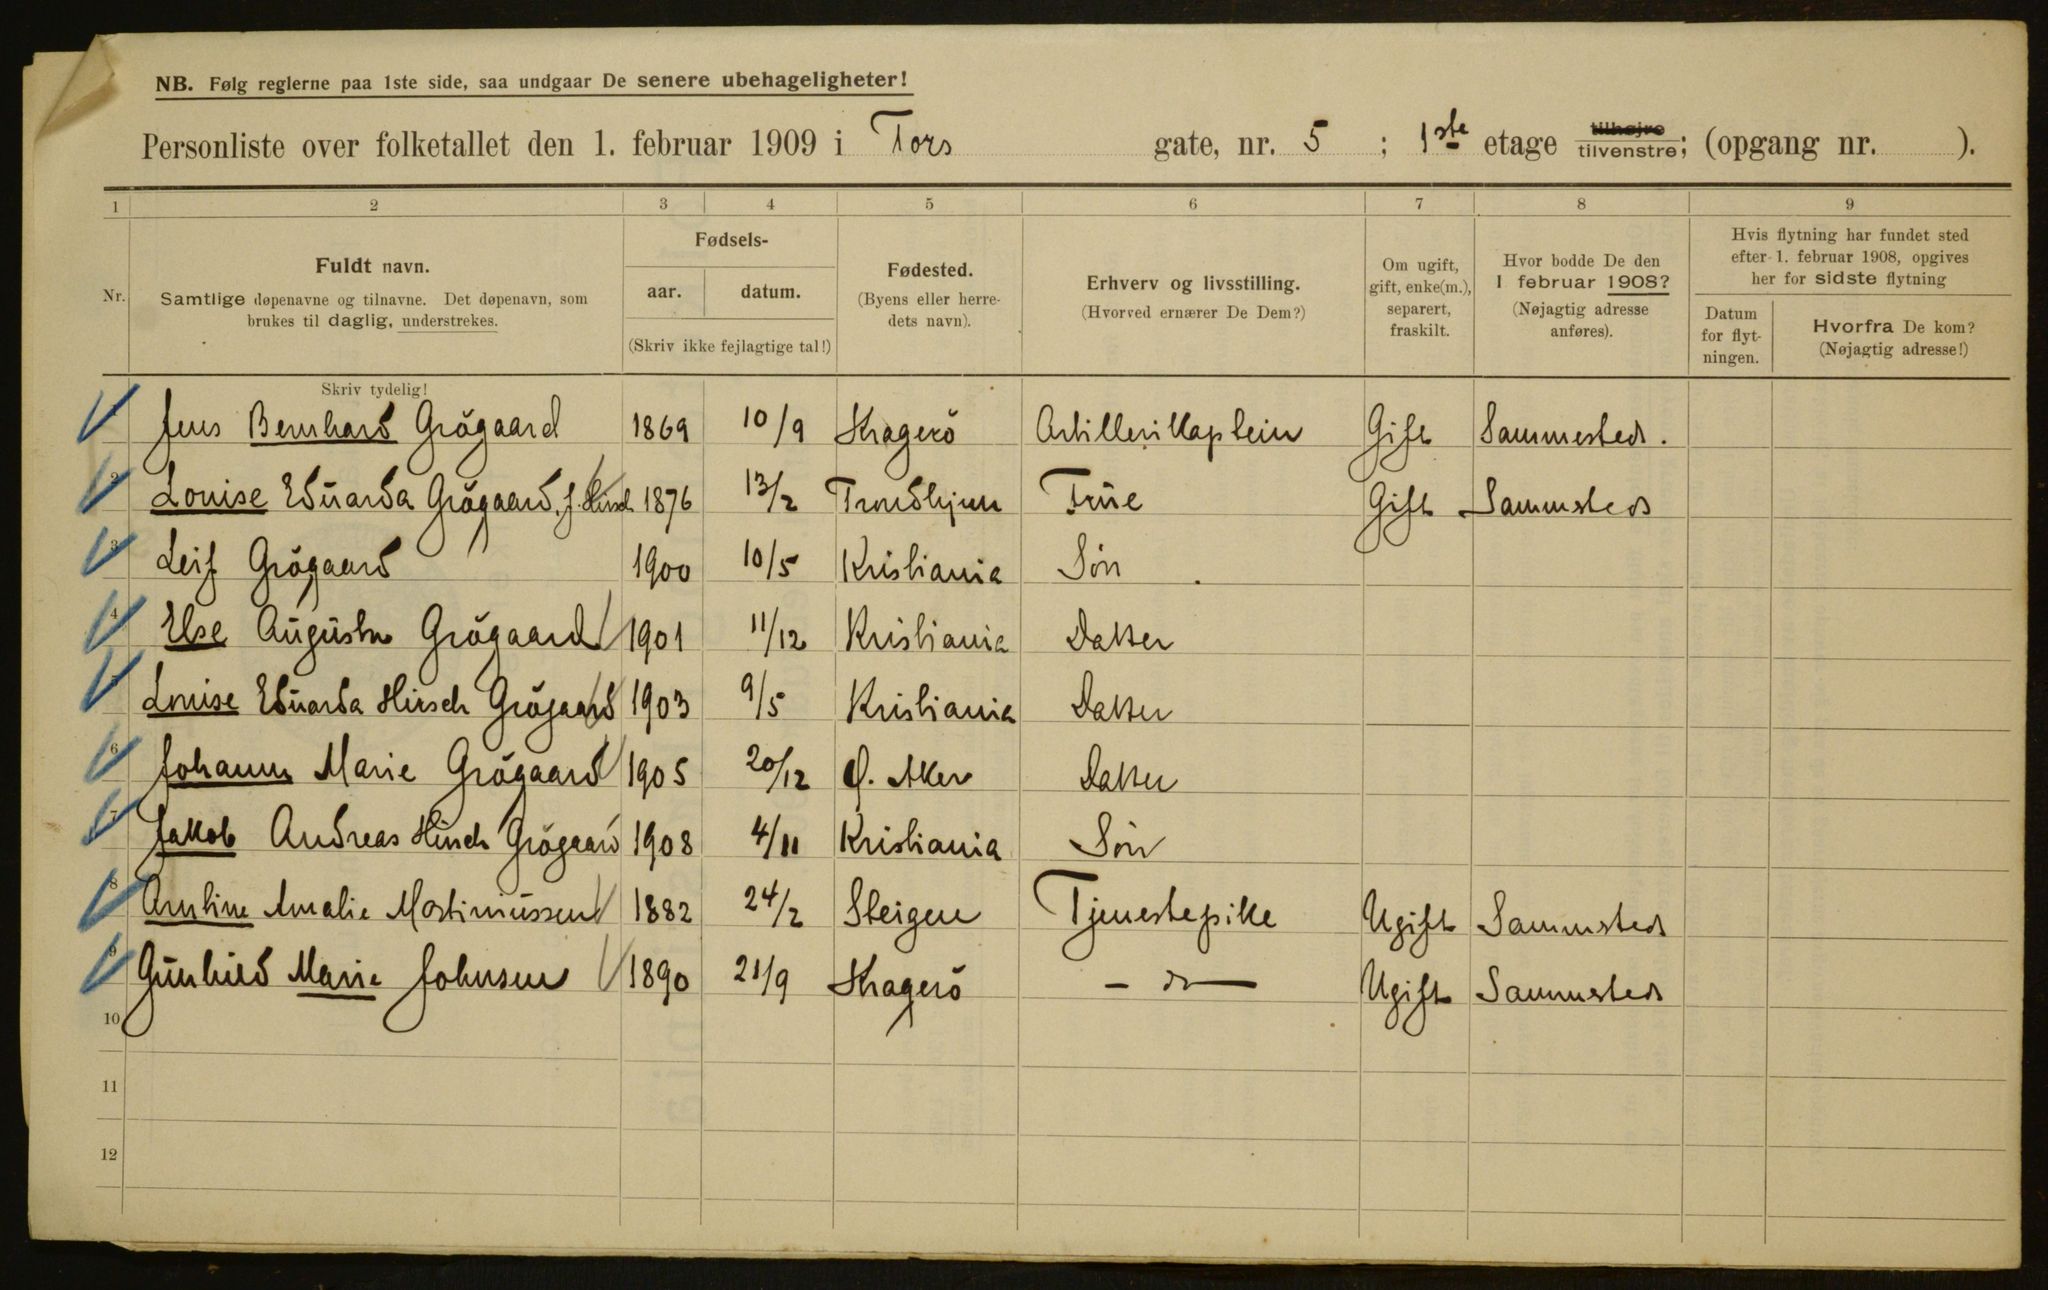 NB. Følg reglerne paa 1ste side, saa undgaar De senere ubehageligheter!
Personliste over folketallet den 1. februar 1909 i Tors gate, nr. 5 ; 1ste etage tilhøjre tilvenstre; (opgang nr. ).
1 2 3 4 5 6 7 8 9
Nr.
Fuldt navn.
Samtlige døpenavne og tilnavne. Det døpenavn, som
brukes til daglig, understrekes.
Skriv tydelig!
Fødsels-
aar. datum.
(Skriv ikke fejlagtige tal!)
Fødested.
(Byens eller herre-
dets navn).
Erhverv og livsstilling.
(Hvorved ernærer De Dem?)
Om ugift,
gift, enke(m.),
separert,
fraskilt.
Hvor bodde De den
1 februar 1908?
(Nøjagtig adresse
anføres).
Hvis flytning har fundet sted
efter 1. februar 1908, opgives
her for sidste flytning
Datum
for flyt-
ningen.
Hvorfra De kom?
(Nøjagtig adresse!)
1 Jens Bernhard Grögaard 1869 10/9 Kragerö Artillerikaptein Gift Sammesteds.
2 Louise Eduarda Grögaard, f. Hirsch 1876 13/2 Trondhjem Frue Gift Sammesteds
3 Leif Grögaard 1900 10/5 Kristiania Sön
4 Else Augusta Grögaard 1901 11/12 Kristiania Datter
5 Louise Eduarda Hirsch Grögaard 1903 9/5 Kristiania Datter
6 Johanne Marie Grögaard 1905 20/12 Ø. Aker Datter
7 Jakob Andreas Hirsch Grögaard 1908 4/11 Kristiania Sön
8 Amalie Martinussen 1882 24/2 Steigen Tjenestepike Ugift Sammesteds
9 Gunhild Marie Johnsen 1890 21/9 Kragerö - do - Ugift Sammesteds
10
11
12